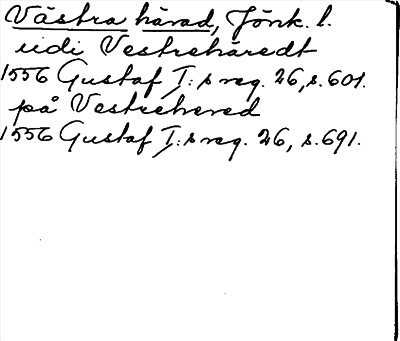 Västra härad, Jönk. l.
uidi Vestrehäredt
1556 Gustaf I:s reg. 26, s. 601.
på Vestrehered
1556 Gustaf I:s reg. 26, s. 691.